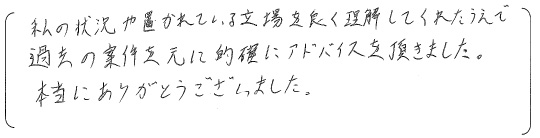 私の状況や置かれている立場を良く理解してくれたうえで
過去の案件を元に的確にアドバイスを頂きました。
本当にありがとうございました。